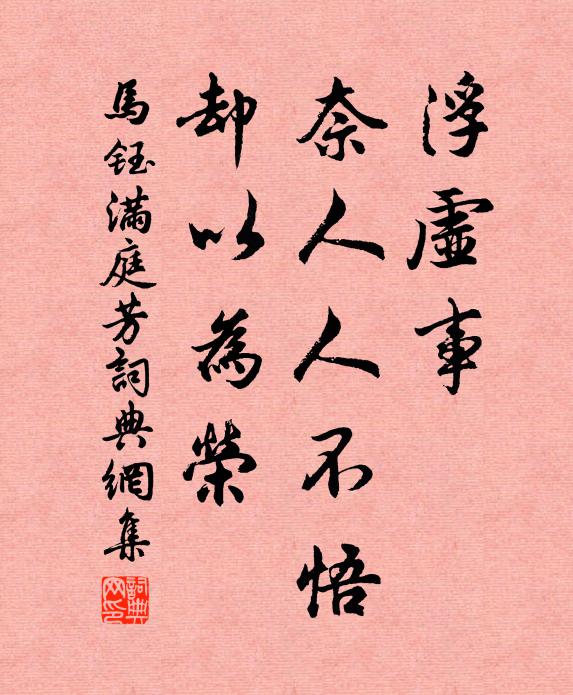 浮虛事
奈人人不悟
却以為榮
馬鈺滿庭芳詞典網集
詞典網印